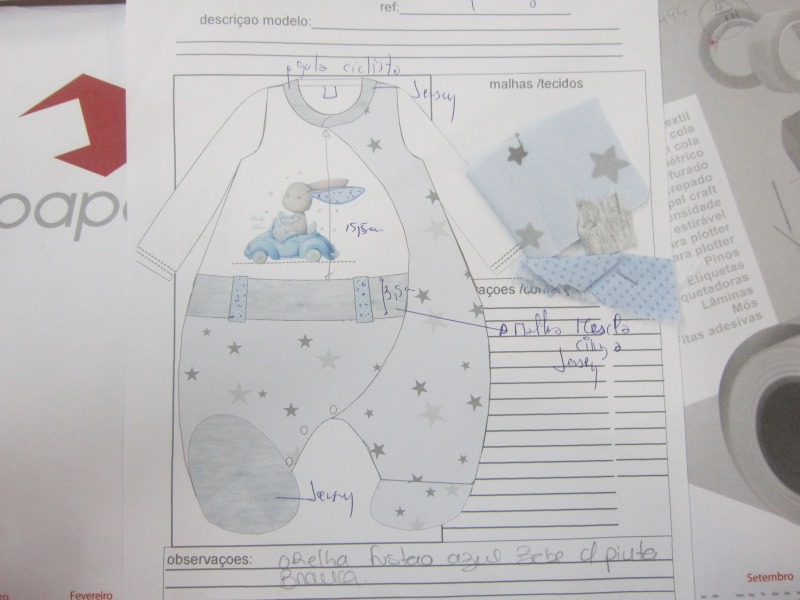 ref:
descriçao modelo:
gola ciclista
Jersey
malhas /tecidos
15,5cm
3,5
Malha Mescla
cinza
Jersey
Jersey
observaçoes: orelha fustao azul bebe c/ pinta
Branca
pape
extil
cola
cola
métrico
furado
crepado
pel craft
ensidade
estirável
ara plotter
ra plotter
Pinos
Etiquetas
quetadoras
Lâminas
Mós
itas adesivas
Fevereiro
Setembro